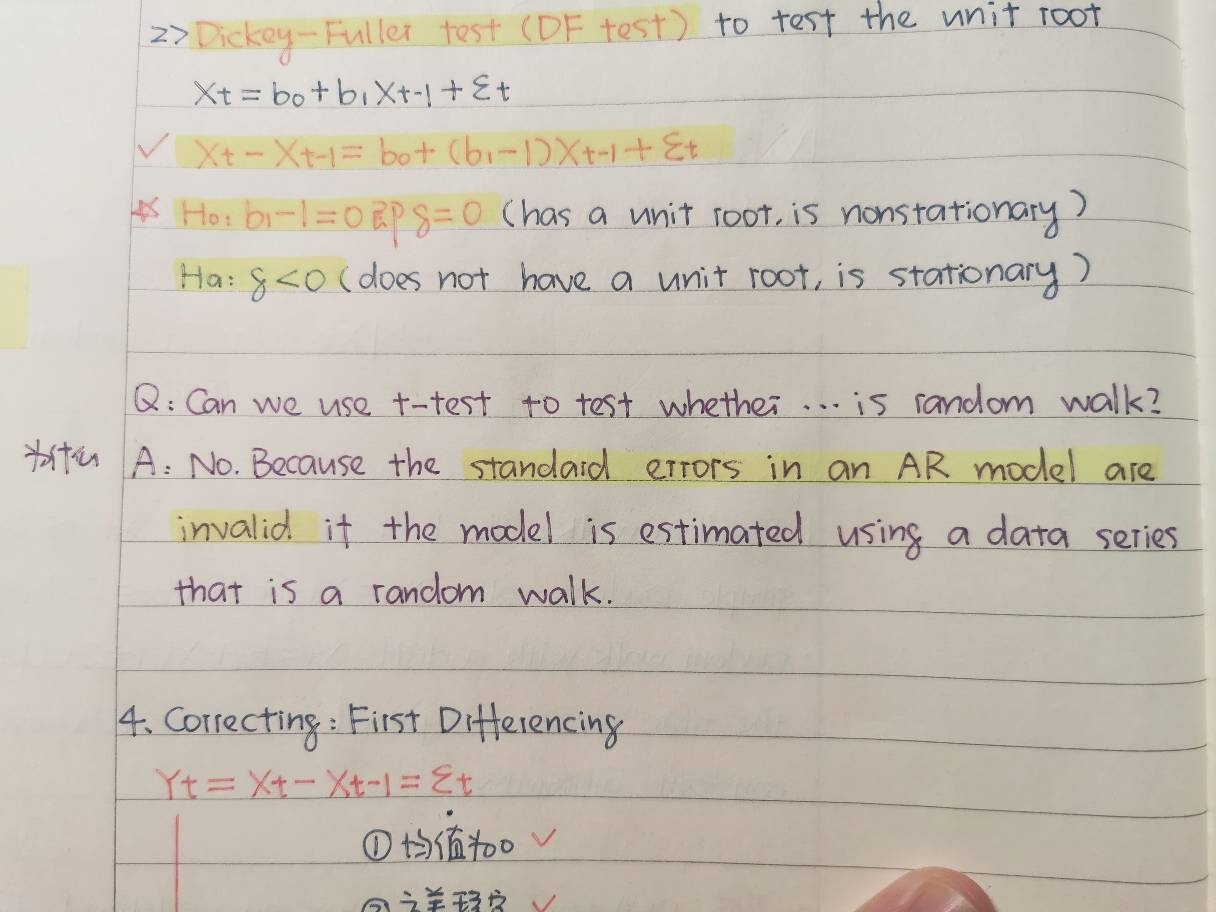 2> Dickey-Fuller test (DF test) to test the unit root
Xt = b0 + b1Xt-1 + Σt
✓ Xt - Xt-1 = b0 + (b1-1)Xt-1 + Σt
☆ H0: b1-1=0 即 g=0 (has a unit root, is nonstationary)
Ha: g<0 (does not have a unit root, is stationary)
Q: Can we use t-test to test whether ... is random walk?
A: No. Because the standard errors in an AR model are
invalid if the model is estimated using a data series
that is a random walk.
4. Correcting: First Differencing
Yt = Xt - Xt-1 = Σt
① 均值为0 ✓
② 方差稳定 ✓